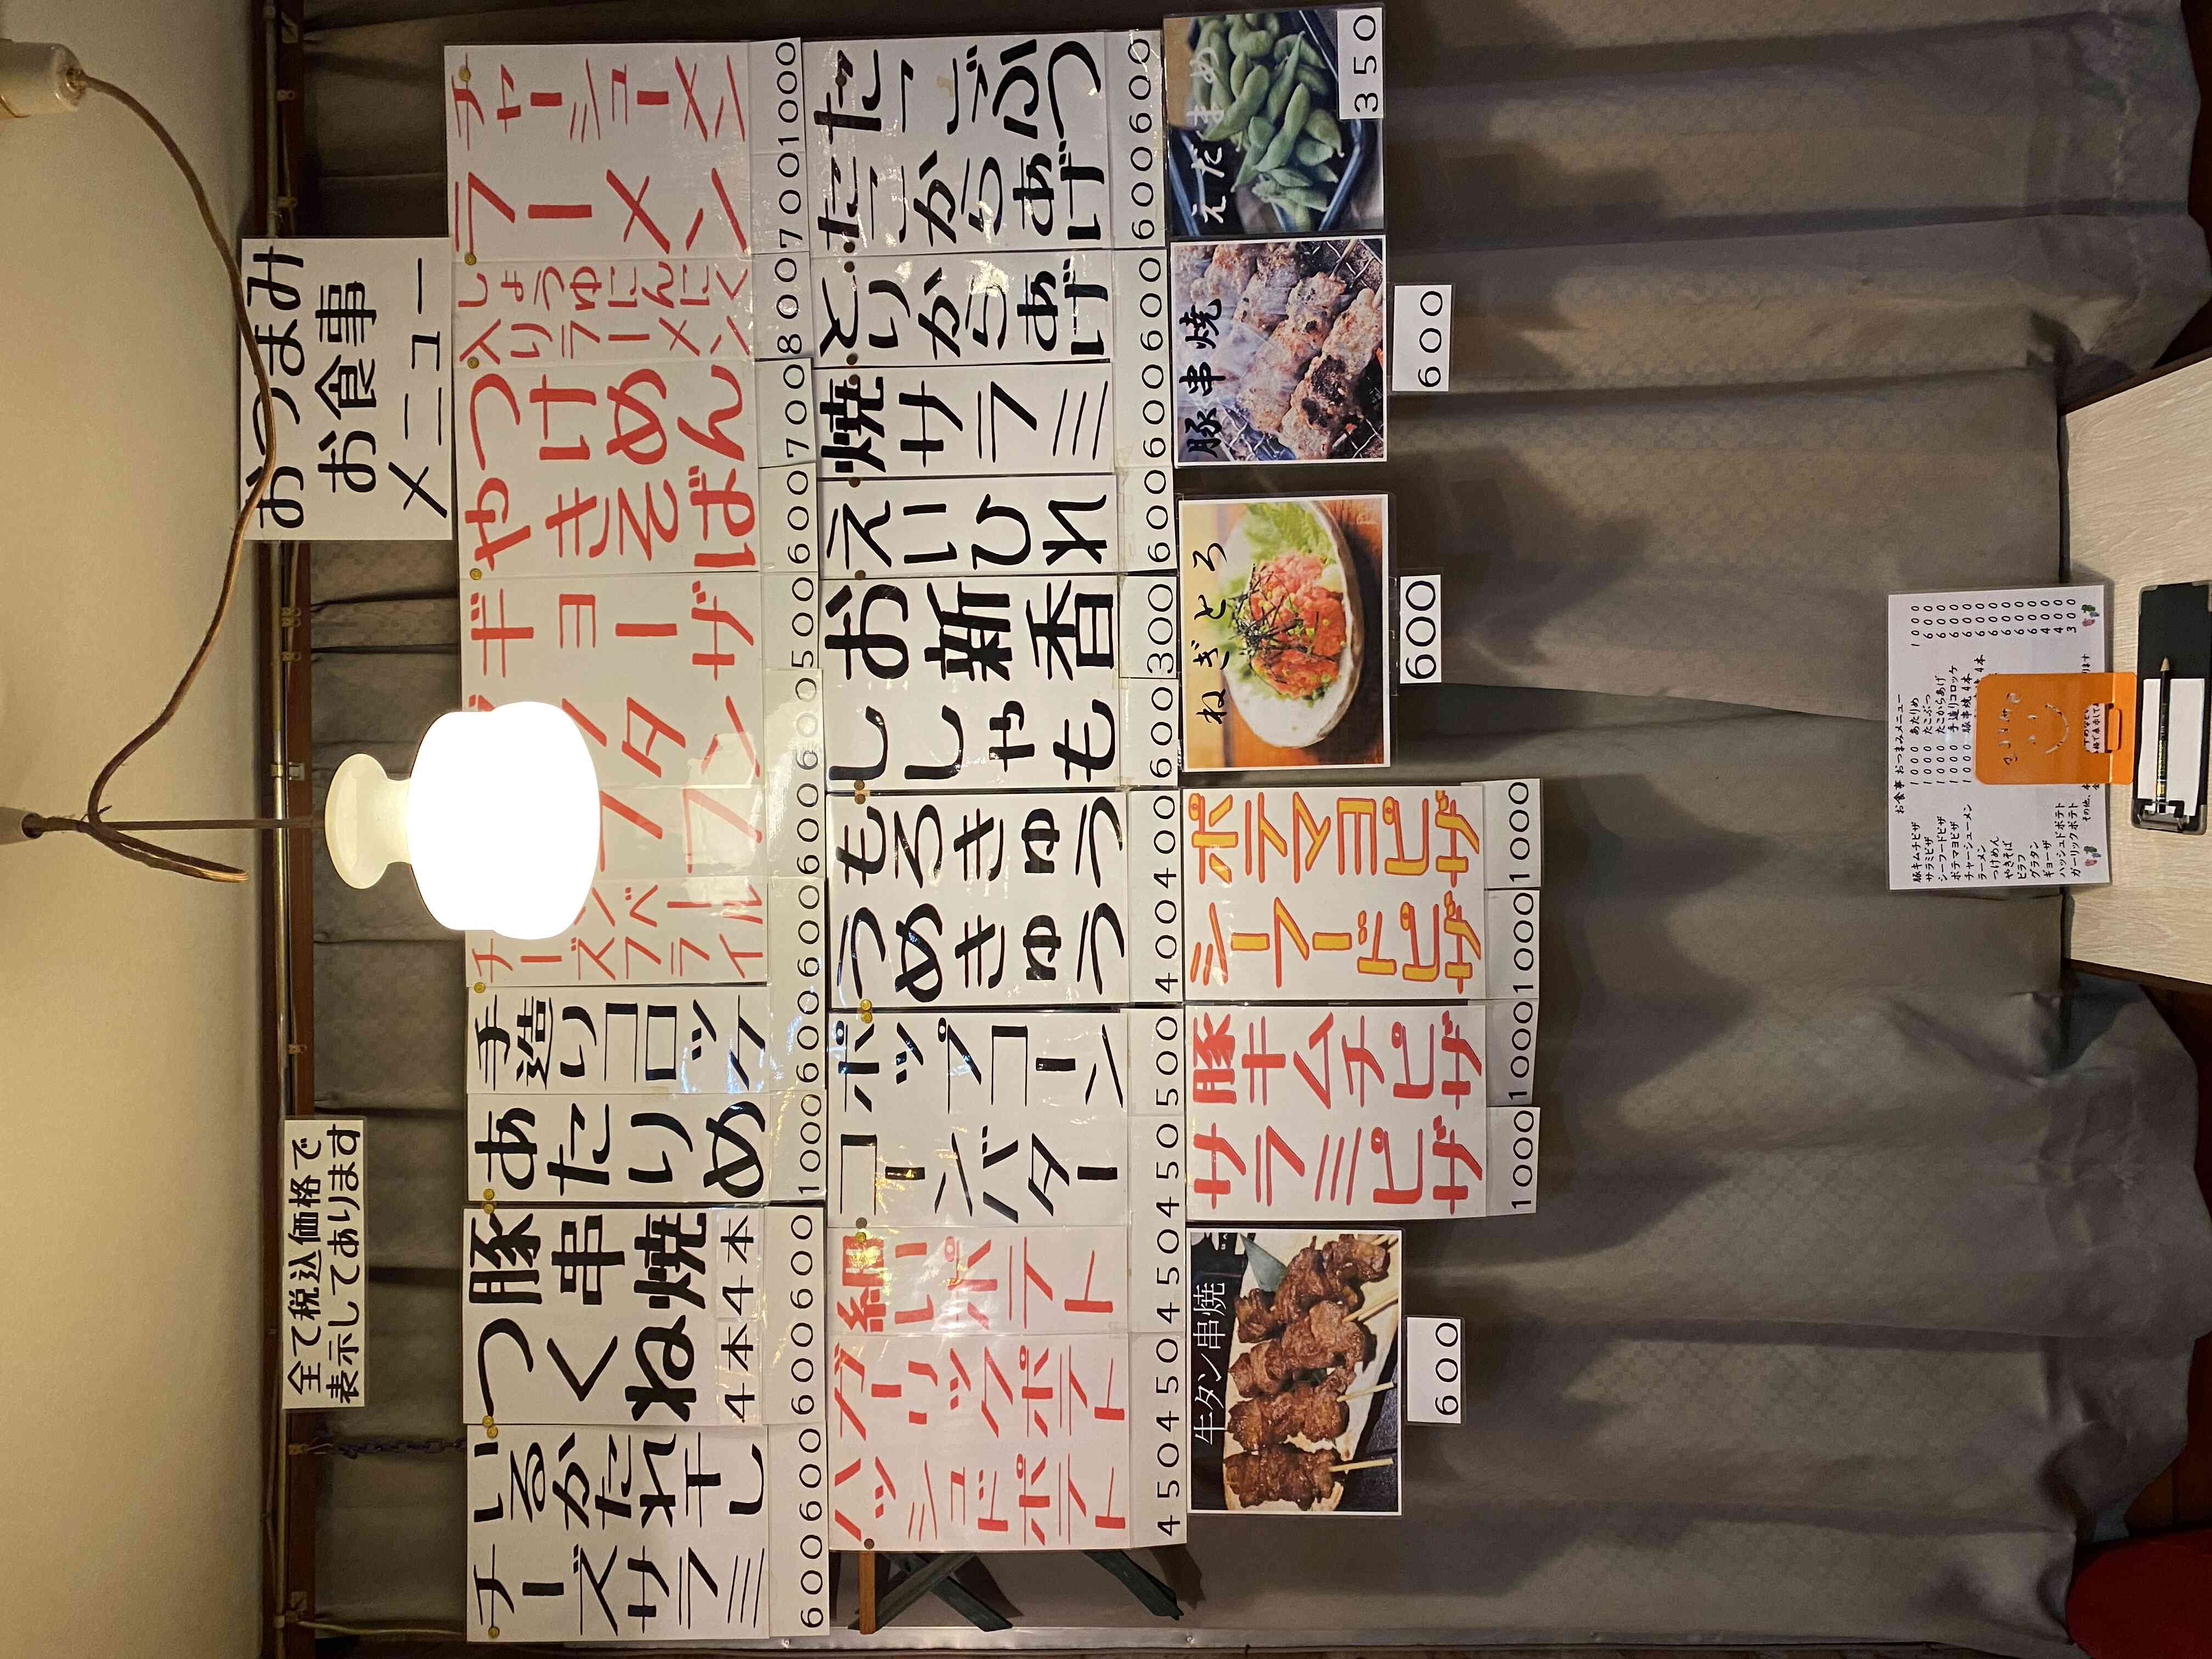 おつまみ
お食事
メニュー
全て税込価格で
表示してあります
チャーシューメン
1000
ラーメン
700
しょうゆにんにく
入りラーメン
800
つけめん
700
やきそば
600
ギョーザ
500
タン
600
フ
600
ンベール
チーズフライ
600
手造りコロッケ
600
あたりめ
1000
豚串焼
4本
600
つくね
4本
600
いるかたれ干し
600
チーズサラミ
600
たこぶつ
600
たこからあげ
600
とりからあげ
600
焼サラミ
600
えいひれ
600
お新香
300
ししゃも
600
もろきゅう
400
うめきゅう
400
ポップコーン
500
コーンバター
450
細いポテト
450
ガーリックポテト
450
ハッシュドポテト
450
えだまめ
350
豚串焼
600
ねぎとろ
600
ポテマヨピザ
1000
シーフードピザ
1000
豚キムチピザ
1000
サラミピザ
1000
牛タン串焼
600
お食事 おつまみメニュー
豚キムチピザ 1000 あたりめ 1000
サラミピザ 1000 たこぶつ 600
シーフードピザ 1000 たこからあげ 600
ポテマヨピザ 1000 手造りコロッケ 600
チャーシューメン 1000 豚串焼4本 600
ラーメン 4本 600
つけめん 600
やきそば 600
ピラフ 600
グラタン 600
ギョーザ 400
ハッシュドポテト 400
ガーリックポテト 300
その他、